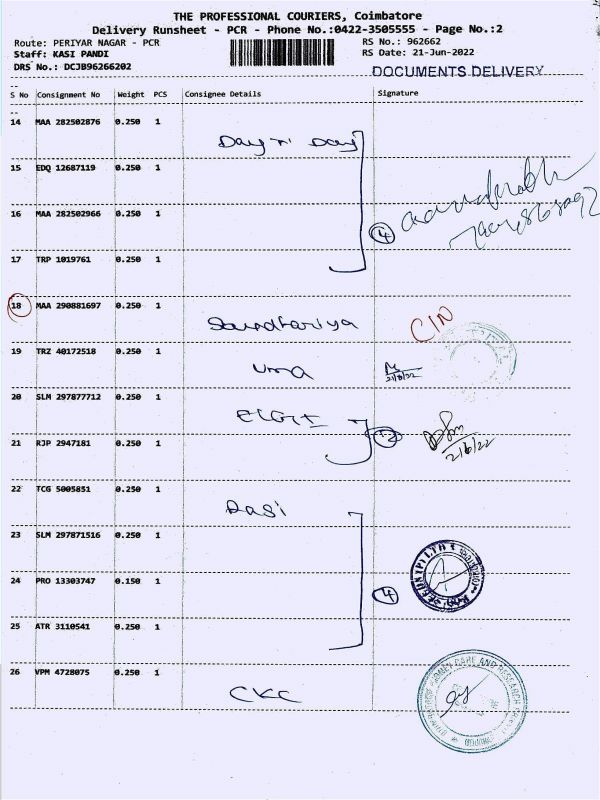 THE PROFESSIONAL COURIERS, Coimbatore
Delivery Runsheet - PCR - Phone No.:0422-3505555 - Page No.:2
Route: PERIYAR NAGAR - PCR
RS No.: 962662
Staff: KASI PANDI
RS Date: 21-Jun-2022
DRS No.: DCJB96266202
DOCUMENTS DELIVERY
S No Consignment No Weight PCS Consignee Details Signature
14 MAA 282502876 0.250 1
Day n Day
15 EDQ 12687119 0.250 1
16 MAA 282502966 0.250 1
4
17 TRP 1019761 0.250 1
18 MAA 290881697 0.250 1
Soundhariya
CIN
19 TRZ 40172518 0.250 1
Uma
21/6/22
20 SLM 297877712 0.250 1
ELGI
21 RJP 2947181 0.250 1
21/6/22
22 TCG 5005851 0.250 1
Dasi
23 SLM 297871516 0.250 1
24 PRO 13303747 0.150 1
4
25 ATR 3110541 0.250 1
26 VPM 4728075 0.250 1
CKC